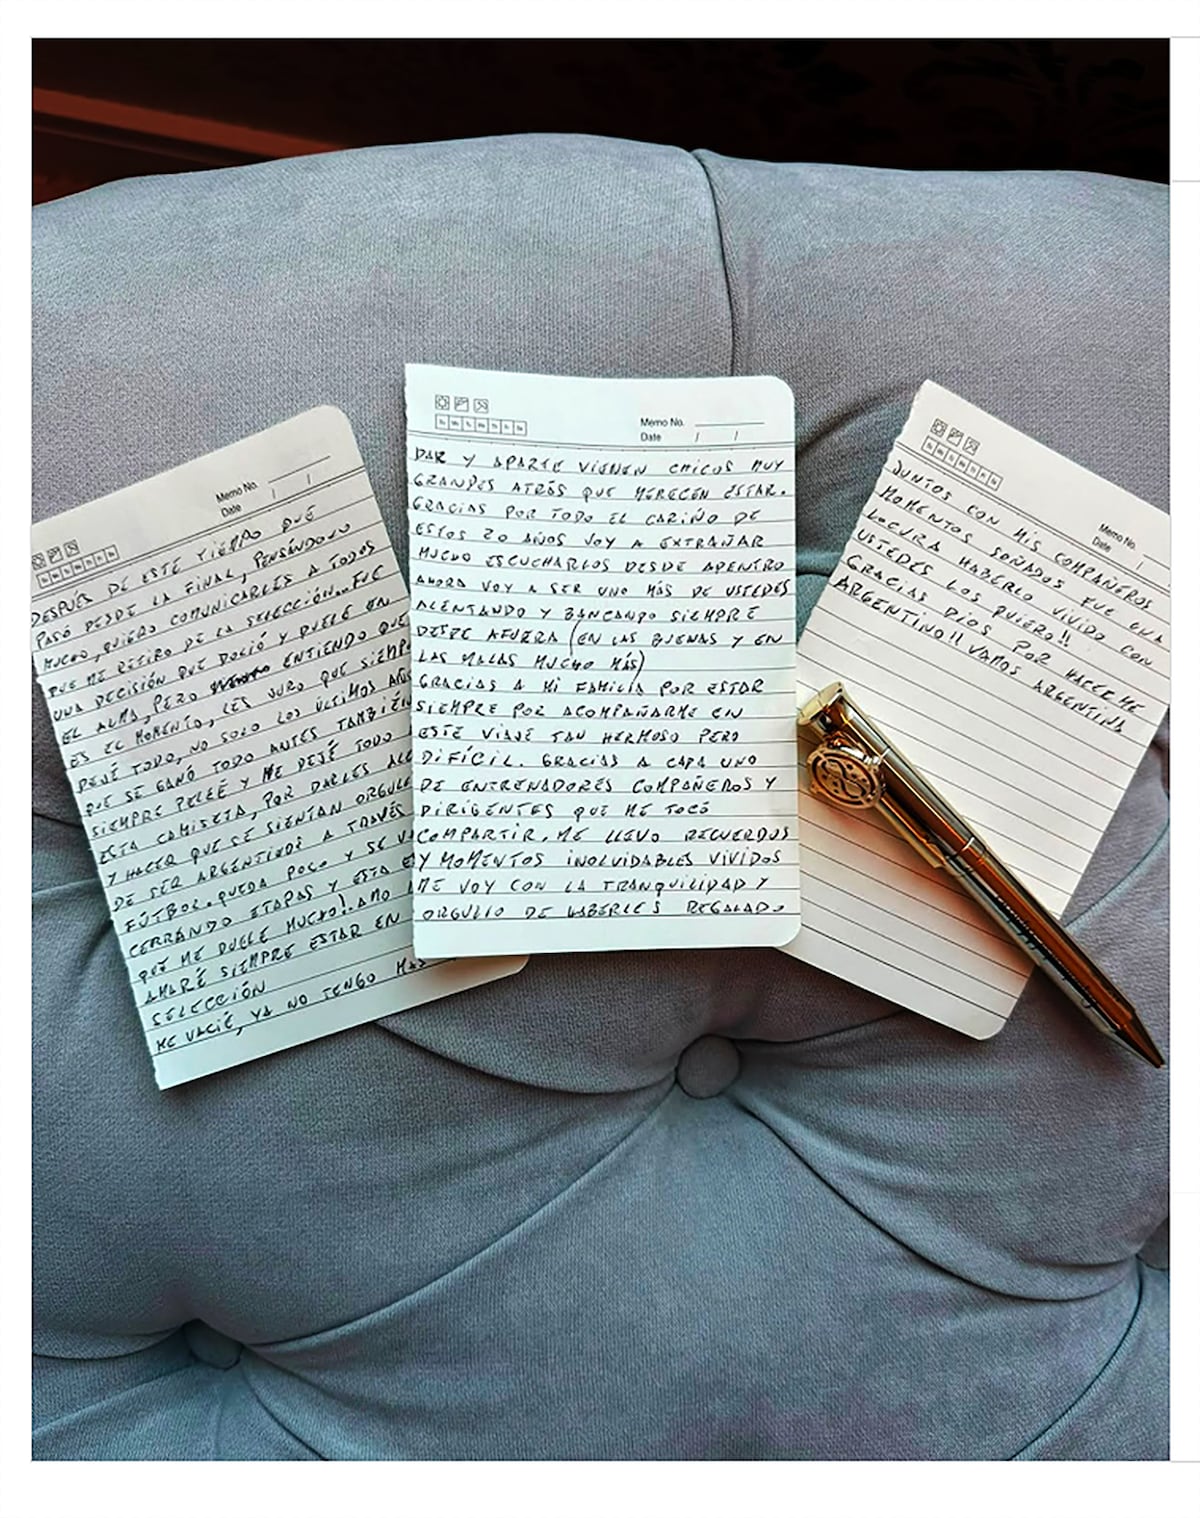 Memo No.
Date / /
DESPUÉS DE ESTE TIEMPO QUE
PASÓ DESDE LA FINAL, PENSÁNDOLO
MUCHO, QUIERO COMUNICARLES A TODOS
QUE ME RETIRO DE LA SELECCIÓN... FUE
UNA DECISIÓN QUE DOLIÓ Y DUELE EN
EL ALMA, PERO ENTIENDO QUE
ES EL MOMENTO, LES JURO QUE SIEMP
DEJÉ TODO, NO SOLO LOS ÚLTIMOS AÑOS
QUE SE GANÓ TODO ANTES TAMBIÉN
SIEMPRE PELEÉ Y ME DEJÉ TODO
ESTA CAMISETA, POR DARLES ALE
Y HACER QUE SE SIENTAN ORGULL
DE SER ARGENTINOS A TRAVÉS
FÚTBOL. QUEDA POCO Y SE VA
CERRANDO ETAPAS Y ESTA E
QUE ME DUELE MUCHO! AMO
AMARÉ SIEMPRE ESTAR EN
SELECCIÓN
ME VACIÉ, YA NO TENGO MAS
Su Mo Tu We Th Fr Sa
Memo No.
Date / /
DAR Y APARTE VIENEN CHICOS MUY
GRANDES ATRÁS QUE MERECEN ESTAR.
GRACIAS POR TODO EL CARIÑO DE
ESTOS 20 AÑOS VOY A EXTRAÑAR
MUCHO ESCUCHARLOS DESDE ADENTRO
AHORA VOY A SER UNO MÁS DE USTEDES
ALENTANDO Y BANCANDO SIEMPRE
DESDE AFUERA (EN LAS BUENAS Y EN
LAS MALAS MUCHO MÁS)
GRACIAS A MI FAMILIA POR ESTAR
SIEMPRE POR ACOMPAÑARME EN
ESTE VIAJE TAN HERMOSO PERO
DIFÍCIL. GRACIAS A CADA UNO
DE ENTRENADORES COMPAÑEROS Y
DIRIGENTES QUE ME TOCÓ
COMPARTIR. ME LLEVO RECUERDOS
Y MOMENTOS INOLVIDABLES VIVIDOS
ME VOY CON LA TRANQUILIDAD Y
ORGULLO DE HABERLES REGALADO
Memo No.
Date /
JUNTOS CON MIS COMPAÑEROS
MOMENTOS SOÑADOS FUE UNA
LOCURA HABERLO VIVIDO CON
USTEDES LOS QUIERO!!
GRACIAS DIOS POR HACERME
ARGENTINO!! VAMOS ARGENTINA